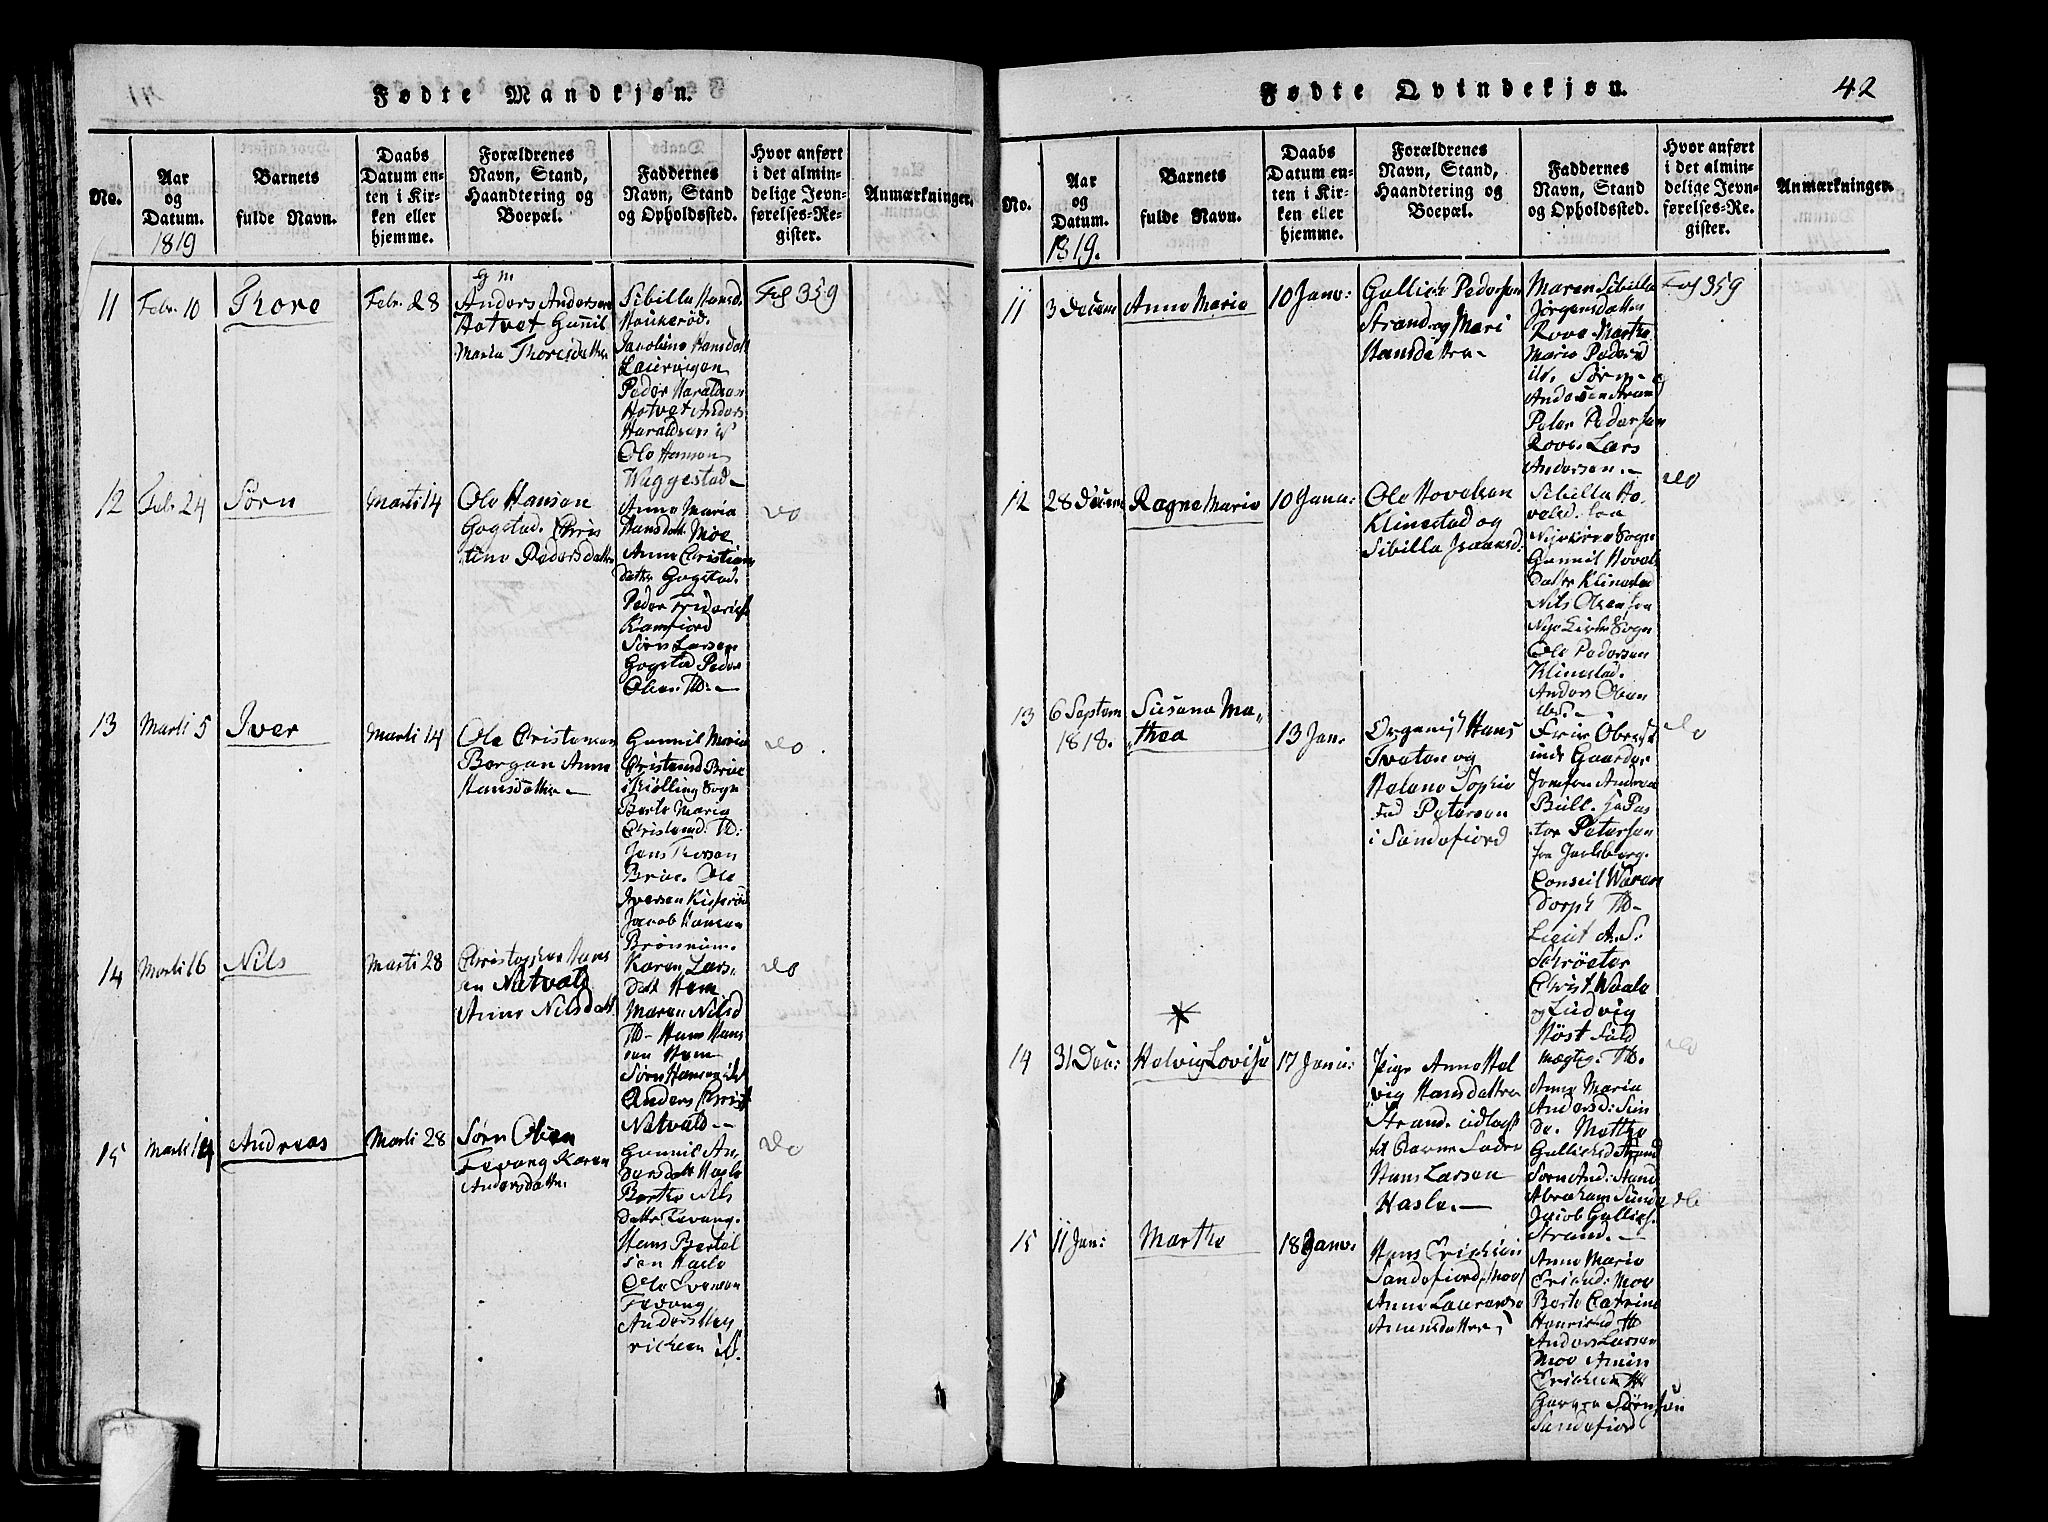 Fødte Mandkjøn.
No.
Aar
og
Datum.
1819
Barnets
fulde Navn.
Daabs
Datum en-
ten i Kir-
ken eller
hjemme.
Forældrenes
Navn, Stand,
Haandtering og
Boepæl.
Faddernes
Navn, Stand
og Opholdssted.
Hvor anført
i det almin-
delige Jevn-
førelses-Re-
gister.
Anmærkninger.
11
Febr. 10
Thore
Febr. 28
Anders Andersen
Hotvet Gunnil
Maria Thoresdatter
Sibilla Hansd.
Haukerød.
Jacobine Hansdatt
Peder Haraldsen
Hotvet Anders
Haraldsen
Ole Hansen
Weggestad
Fol 359
12
Feb. 24
Sørn
Marti 14
Ole Hansen
Gogstad. Chris
tine Pedersdatter
Anne Maria
Hansdatt Moe
Anne Christians
datter Gogstad.
Peder Friderichs
Kamfiord
Sørn Larsen
Gogstad Peder
Olsen. Ib.
do
13
Marti 5
Iver
Marti 14
Ole Cristensen
Bergan Anne
Hansdatter
Gunnil Maria
Cristensd Brue
i Kiølling Sogn
Berte Maria
Christensd: Ib:
Jens Thorsen
Brue. Ole
Iversen
Jacob Hansen
do
14
Marti 16
Nils
Marti 28
Christopher Hans
en Natvald
Anne Nilsdatt
Karen Lars
datt Hem
Maren Nilsd
Ib Hans Hans
sen Hem
Sørn Hansen
Anders Christ
Natvald
do
15
Marti 14
Andreas
Marti 28
Sørn Olsen
Fevang Karen
Andersdatter
Gunnil An
dersdatt Hasle
Berthe Nils
datter Fevang.
Hans Bertel
sen Hasle
Ole Svensen
Fevang
Anders
richsen
do
Fødte Qvindekjøn.
42
No.
Aar
og
Datum.
1819.
Barnets
fulde Navn.
Daabs
Datum en-
ten i Kir-
ken eller
hjemme.
Forældrenes
Navn, Stand,
Haandtering og
Boepæl.
Faddernes
Navn, Stand
og Opholdssted.
Hvor anført
i det almin-
delige Jevn-
førelses-Re-
gister.
Anmærkninger.
11
3 Decem
Anne Marie
10 Janv:
Gullich Pedersen
Strand og Mari
Hansdatter
Maren Sibilla
Jørgensdatter
Rove Marthe
Marie Peders
Sørn
Andersen Strand
Peter Pedersen
Rove. Lars
Andersen.
Fol 359
12
28 Decem
Ragne Marie
10 Jana:
Ole Hovelsen
Klinestad og
Sibilla Isaacsd:
Sibilla Ho
velsd. fra
Nykirke Sogn
Gunnil Hovels
datter Klinestad
Nils Olsen fra
Nye Kirke Sogn
Ole Pedersen
Klinestad.
Anders Olsen
do
13
6 Septem
1818.
Susana Ma„
„thea
13 Jan.
Organist Hans
Tveten og
Helene Sophie
Fød Petersen
i Sandefiord
Frue Oberst
Jomfru Andrea
Bull. Hr Pas
tor Petersen
fra Jarlsberg.
Conseil Waren
dorph Ib
Lieut A. S.
Schrøeter
Christ Waale
og Ludvig
Høst Fuld
mægtig. Ib.
do
14
31 Dec:
Helvig Lovise
17 Janu:
Pige Anne Hel
vig Hansdatter
Strand. udlagt
til Barne Fader
Hans Larsen
Hasle.
Anne Maria
Andersd: Sun
de. Marthe
Gullichsd Strand
Sørn And: Strand
Abraham Sunde
Jacob Gullichs.
Strand.
do
15
11 Jan:
Marthe
18 Janv.
Hans Erichsen
Sandefiord, Moe
Anne Laurense
Amundsdatter
Anne Marie
Erichsd: Moe
Berte Catrine
Henrichsd Ib
Anders Larsen
Moe Amun
Erichsen Ib
Sørensen
Sandefiord
do